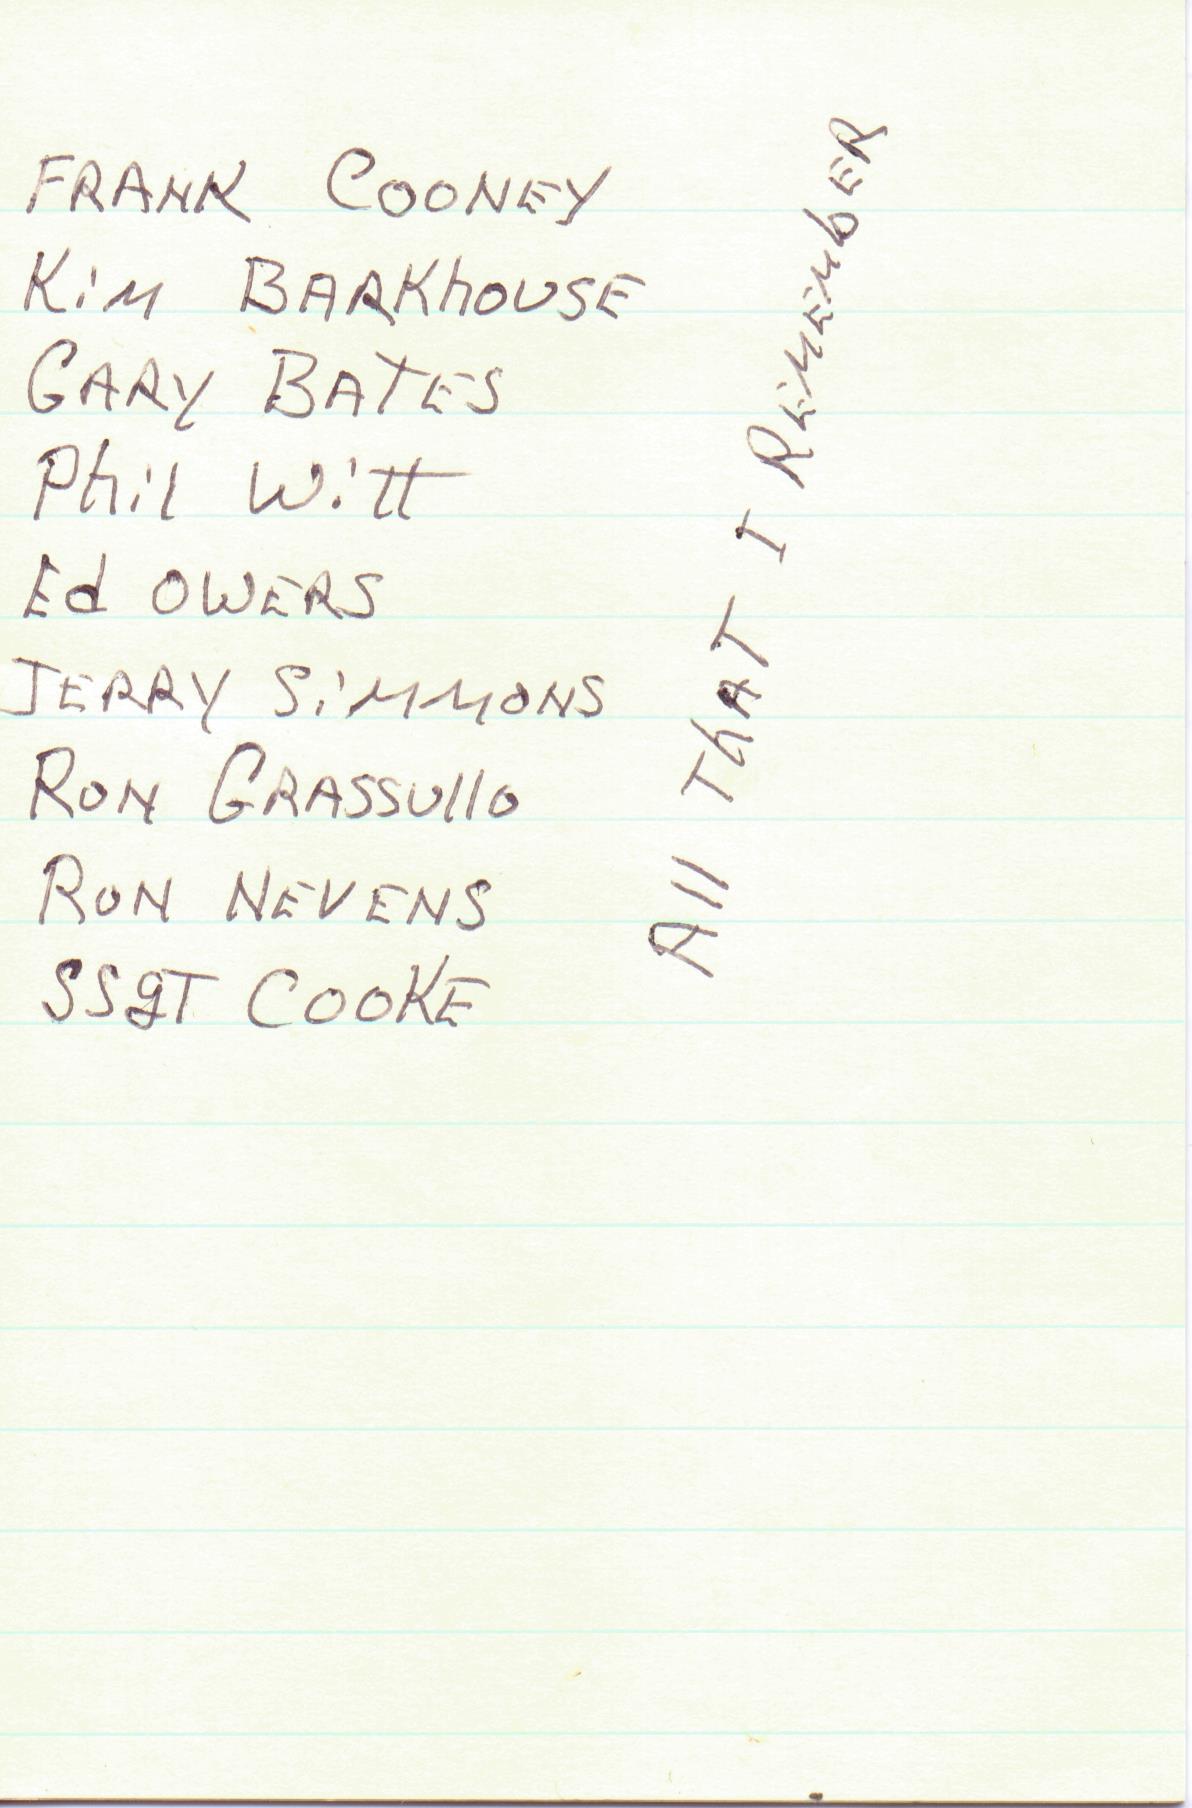 FRANK COONEY
Kim BARKhOUSE
GARY BATES
Phil Witt
Ed OWERS
JERRY SiMMONS
RON GRASSUllO
RON NEVENS
SSgT COOKE
All ThAT I REMEMbER